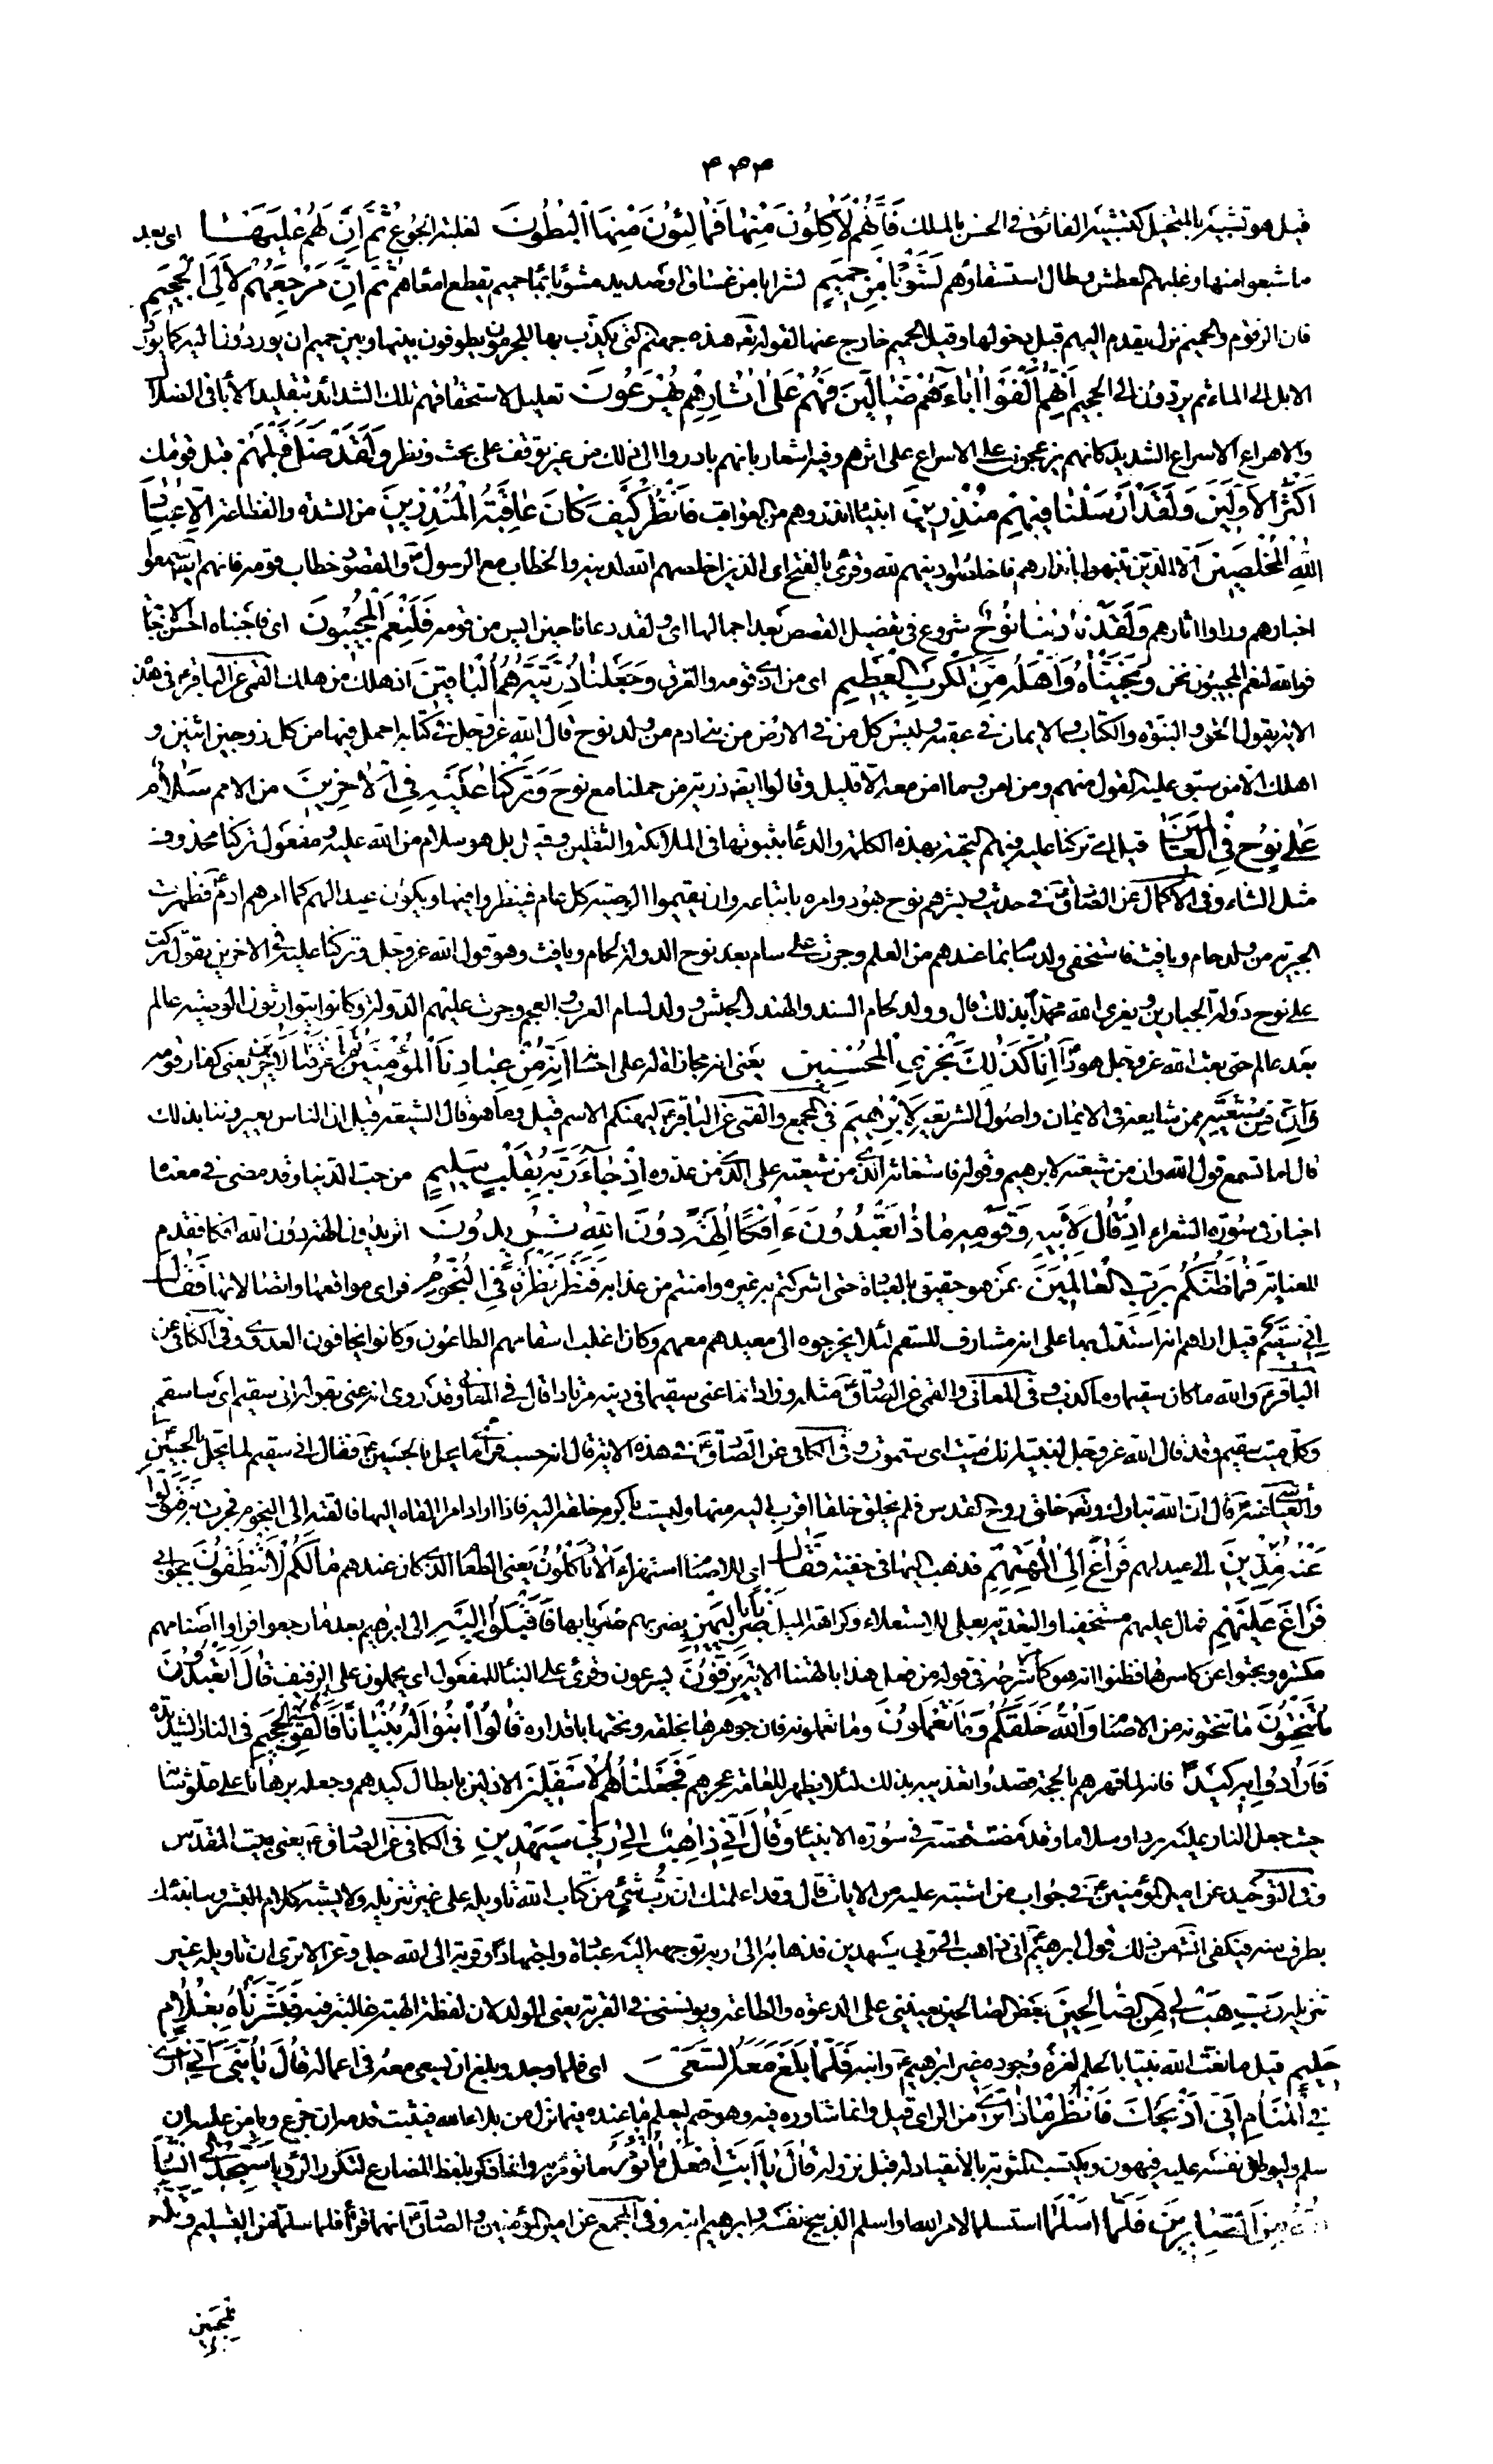 ۴۳۳
قيل هو تشبيه بالمتخيل كتشبيه الفائق في الحسن بالملك فَإِنَّهُمْ لَآكِلُونَ مِنْهَا فَمَالِئُونَ مِنْهَا الْبُطُونَ لغلبة الجوع ثُمَّ إِنَّ لَهُمْ عَلَيْهَا اى بعد
ما شبعوا منها وغلبهم العطش وطال استسقاؤهم لَشَوْبًا مِنْ حَمِيمٍ لشرابا من غساق او صديد مشوبا بماء حميم يقطع امعاءهم ثُمَّ إِنَّ مَرْجِعَهُمْ لَإِلَى الْجَحِيمِ
فان الزقوم والحميم نزل يقدم اليهم قبل دخولها وقيل الحميم خارج عنها لقوله تعه هذه جهنم التى يكذب بها المجرمون يطوفون بينها وبين حميم ان يوردون اليه كما يورد
الابل الى الماء ثم يردون الى الجحيم إِنَّهُمْ أَلْفَوْا آبَاءَهُمْ ضَالِّينَ فَهُمْ عَلَىٰ آثَارِهِمْ يُهْرَعُونَ تعليل لاستحقاقهم تلك الشدائد بتقليد الأباء فى الضلال
والاهراع الاسراع الشديد كانهم يزعجون على الاسراع على اثرهم وفيه اشعار بانهم بادروا الى ذلك من غير توقف على بحث ونظر وَلَقَدْ ضَلَّ قَبْلَهُمْ قبل قومك
أَكْثَرُ الْأَوَّلِينَ وَلَقَدْ أَرْسَلْنَا فِيهِمْ مُنْذِرِينَ انبياء انذروهم من العواقب فَانْظُرْ كَيْفَ كَانَ عَاقِبَةُ الْمُنْذَرِينَ من الشدة والفظاعة إِلَّا عِبَادَ
اللَّهِ الْمُخْلَصِينَ الا الذين تنبهوا بانذارهم فاخلصوا دينهم لله وقرئ بالفتح اى الذين اخلصهم الله لدينه والخطاب مع الرسول ص والمقصود خطاب قومه فانهم ايضه سمعوا
اخبارهم وراوا اثارهم وَلَقَدْ نَادَانَا نُوحٌ شروع فى تفصيل القصص بعد اجمالها اى ولقد دعانا حين ايس من قومه فَلَنِعْمَ الْمُجِيبُونَ اى فاجبناه احسن الاجابة
فوالله لنعم المجيبون نحن وَنَجَّيْنَاهُ وَأَهْلَهُ مِنَ الْكَرْبِ الْعَظِيمِ اى من اذى قومه والغرق وَجَعَلْنَا ذُرِّيَّتَهُ هُمُ الْبَاقِينَ اذ هلك من هلك القمى عن الباقر ع فى هذه
الاية يقول الحق والنبوة والكتاب والايمان فى عقبه وليس كل من فى الارض من بنى ادم من ولد نوح قال الله عز وجل فى كتابه احمل فيها من كل زوجين اثنين و
اهلك الا من سبق عليه القول منهم ومن امن وما امن معه الا قليل وقال ايضه ذرية من حملنا مع نوح وَتَرَكْنَا عَلَيْهِ فِي الْآخِرِينَ من الامم سَلَامٌ
عَلَىٰ نُوحٍ فِي الْعَالَمِينَ قيل اى تركنا عليه فيهم التحية بهذه الكلمة والدعاء بثبوتها فى الملائكة والثقلين وقيل بل هو سلام من الله عليه ومفعول تركنا محذوف
مثل الثناء وفى الاكمال عن الصادق ع فى حديث وبشرهم نوح بهود وامره باتباعه وان يقيموا الوصية كل عام فينظروا فيها ويكون عيدا لهم كما امرهم ادم ع فظهرت
الجبرية من ولد حام ويافث فاستخفى ولد سام بما عندهم من العلم وجرت على سام بعد نوح الدولة لحام ويافث وهو قول الله عز وجل وتركنا عليه فى الاخرين يقول تركت
على نوح دولة الجبارين ويعزى الله محمدا بذلك قال وولد لحام السند والهند والحبش وولد لسام العرب والعجم وجرت عليهم الدولة وكانوا يتوارثون الوصية عالم
بعد عالم حتى بعث الله عز وجل هودا إِنَّا كَذَٰلِكَ نَجْزِي الْمُحْسِنِينَ يعنى انه مجازاة له على احسانه إِنَّهُ مِنْ عِبَادِنَا الْمُؤْمِنِينَ ثُمَّ أَغْرَقْنَا الْآخَرِينَ يعنى كفار قومه
وَإِنَّ مِنْ شِيعَتِهِ ممن شايعه فى الايمان واصول الشريعة لَإِبْرَاهِيمَ فى المجمع والقمى عن الباقر ع ليهنكم الاسم قيل وما هو قال الشيعة قيل ان الناس يعيروننا بذلك
قال اما تسمع قول الله وان من شيعته لابرهيم وقوله فاستغاثه الذى من شيعته على الذى من عدوه إِذْ جَاءَ رَبَّهُ بِقَلْبٍ سَلِيمٍ من حب الدنيا وقد مضى فى معناه
اخبار فى سورة الشعراء إِذْ قَالَ لِأَبِيهِ وَقَوْمِهِ مَاذَا تَعْبُدُونَ ءَإِفْكًا آلِهَةً دُونَ اللَّهِ تُرِيدُونَ اتريدون الهة دون الله افكا فقدم
للعناية فَمَا ظَنُّكُمْ بِرَبِّ الْعَالَمِينَ بمن هو حقيق بالعبادة حتى اشركتم به غيره وامنتم من عذابه فَنَظَرَ نَظْرَةً فِي النُّجُومِ فراى مواقعها واتصالاتها فَقَالَ
إِنِّي سَقِيمٌ قيل اراهم انه استدل بها على انه مشارف للسقم لئلا يخرجوه الى معيدهم معهم وكان اغلب اسقامهم الطاعون وكانوا يخافون العدوى وفى الكافى عن
الباقر ع والله ما كان سقيما وما كذب وفى المعانى والقمى عن الصادق ع مثله وزاد انما عنى سقيما فى دينه مرتادا قال فى المعانى وقد روى انه عنى بقوله انى سقيم اى ساسقم
وكل ميت سقيم وقد قال الله عز وجل لنبيه انك ميت اى ستموت وفى الكافى عن الصادق ع فى هذه الاية قال انه حسب فراى ما يحل بالحسين ع فقال انى سقيم لما يحل بالحسين
والعياشى عنه ع قال ان الله تبارك وتعه خلق روح القدس فلم يخلق خلقا اقرب اليه منها وليست باكرم خلقه اليه فاذا اراد امرا القاه اليها فالقته الى النجوم فجرت به فَتَوَلَّوْا
عَنْهُ مُدْبِرِينَ الى عيد لهم فَرَاغَ إِلَىٰ آلِهَتِهِمْ فذهب اليها فى خفية فَقَالَ اى للاصنام استهزاء أَلَا تَأْكُلُونَ يعنى الطعام الذى كان عندهم مَا لَكُمْ لَا تَنْطِقُونَ بجوابى
فَرَاغَ عَلَيْهِمْ فمال عليهم مستخفيا والتعدية بعلى للاستعلاء وكراهة الميل ضَرْبًا بِالْيَمِينِ يضربهم ضربا بها فَأَقْبَلُوا إِلَيْهِ الى ابرهيم بعد ما رجعوا فراوا اصنامهم
مكسرة وبحثوا عن كاسرها فظنوا انه هو كما شرحه فى قوله من فعل هذا بالهتنا الاية يَزِفُّونَ يسرعون وقرئ على البناء للمفعول اى يحملون على الزفيف قَالَ أَتَعْبُدُونَ
مَا تَنْحِتُونَ ما تنحتونه من الاصنام وَاللَّهُ خَلَقَكُمْ وَمَا تَعْمَلُونَ وما تعملونه فان جوهرها بخلقه ونحتها باقداره قَالُوا ابْنُوا لَهُ بُنْيَانًا فَأَلْقُوهُ فِي الْجَحِيمِ فى النار الشديدة
فَأَرَادُوا بِهِ كَيْدًا فانه لما قهرهم بالحجة قصدوا تعذيبه بذلك لئلا يظهر للعامة عجزهم فَجَعَلْنَاهُمُ الْأَسْفَلِينَ الاذلين بابطال كيدهم وجعله برهانا على علو شانه
حيث جعل النار عليه بردا وسلاما وقد مضت قصته فى سورة الانبياء وَقَالَ إِنِّي ذَاهِبٌ إِلَىٰ رَبِّي سَيَهْدِينِ فى الكافى عن الصادق ع يعنى بيت المقدس
وفى التوحيد عن امير المؤمنين ع فى جواب من اشتبه عليه من الايات قال وقد اعلمتك ان رب شئ من كتاب الله تاويله على غير تنزيله ولا يشبه كلام البشر وسانبئك
بطرف منه فيكفى انشه من ذلك قول ابرهيم ع انى ذاهب الى ربى سيهدين فذهابه الى ربه توجهه اليه عبادة واجتهادا وقربة الى الله جل وعز الا ترى ان تاويله غير
تنزيله رَبِّ هَبْ لِي مِنَ الصَّالِحِينَ بعض الصالحين يعيننى على الدعوة والطاعة ويونسنى فى الغربة يعنى الولد لان لفظة الهبة غالبة فيه فَبَشَّرْنَاهُ بِغُلَامٍ
حَلِيمٍ قيل ما نعت الله نبيا بالحلم لعزة وجوده غير ابرهيم ع وابنه فَلَمَّا بَلَغَ مَعَهُ السَّعْيَ اى فلما وجد وبلغ ان يسعى معه فى اعماله قَالَ يَا بُنَيَّ إِنِّي أَرَىٰ
فِي الْمَنَامِ أَنِّي أَذْبَحُكَ فَانْظُرْ مَاذَا تَرَىٰ من الراى قيل وانما شاوره فيه وهو حتم ليعلم ما عنده فيما نزل من بلاء الله فيثبت قدمه ان جزع ويامن عليه ان
سلم وليوطن نفسه عليه فيهون ويكتسب المثوبة بالانقياد له قبل نزوله قَالَ يَا أَبَتِ افْعَلْ مَا تُؤْمَرُ ما تؤمر به وانما ذكر بلفظ المضارع لتكرر الرؤيا سَتَجِدُنِي إِنْ شَاءَ
اللَّهُ مِنَ الصَّابِرِينَ فَلَمَّا أَسْلَمَا استسلما لامر الله او اسلم الذبيح نفسه وابرهيم ابنه وفى المجمع عن امير المؤمنين والصادق ع انهما قرءا فلما سلما من التسليم وَتَلَّهُ
للجبين